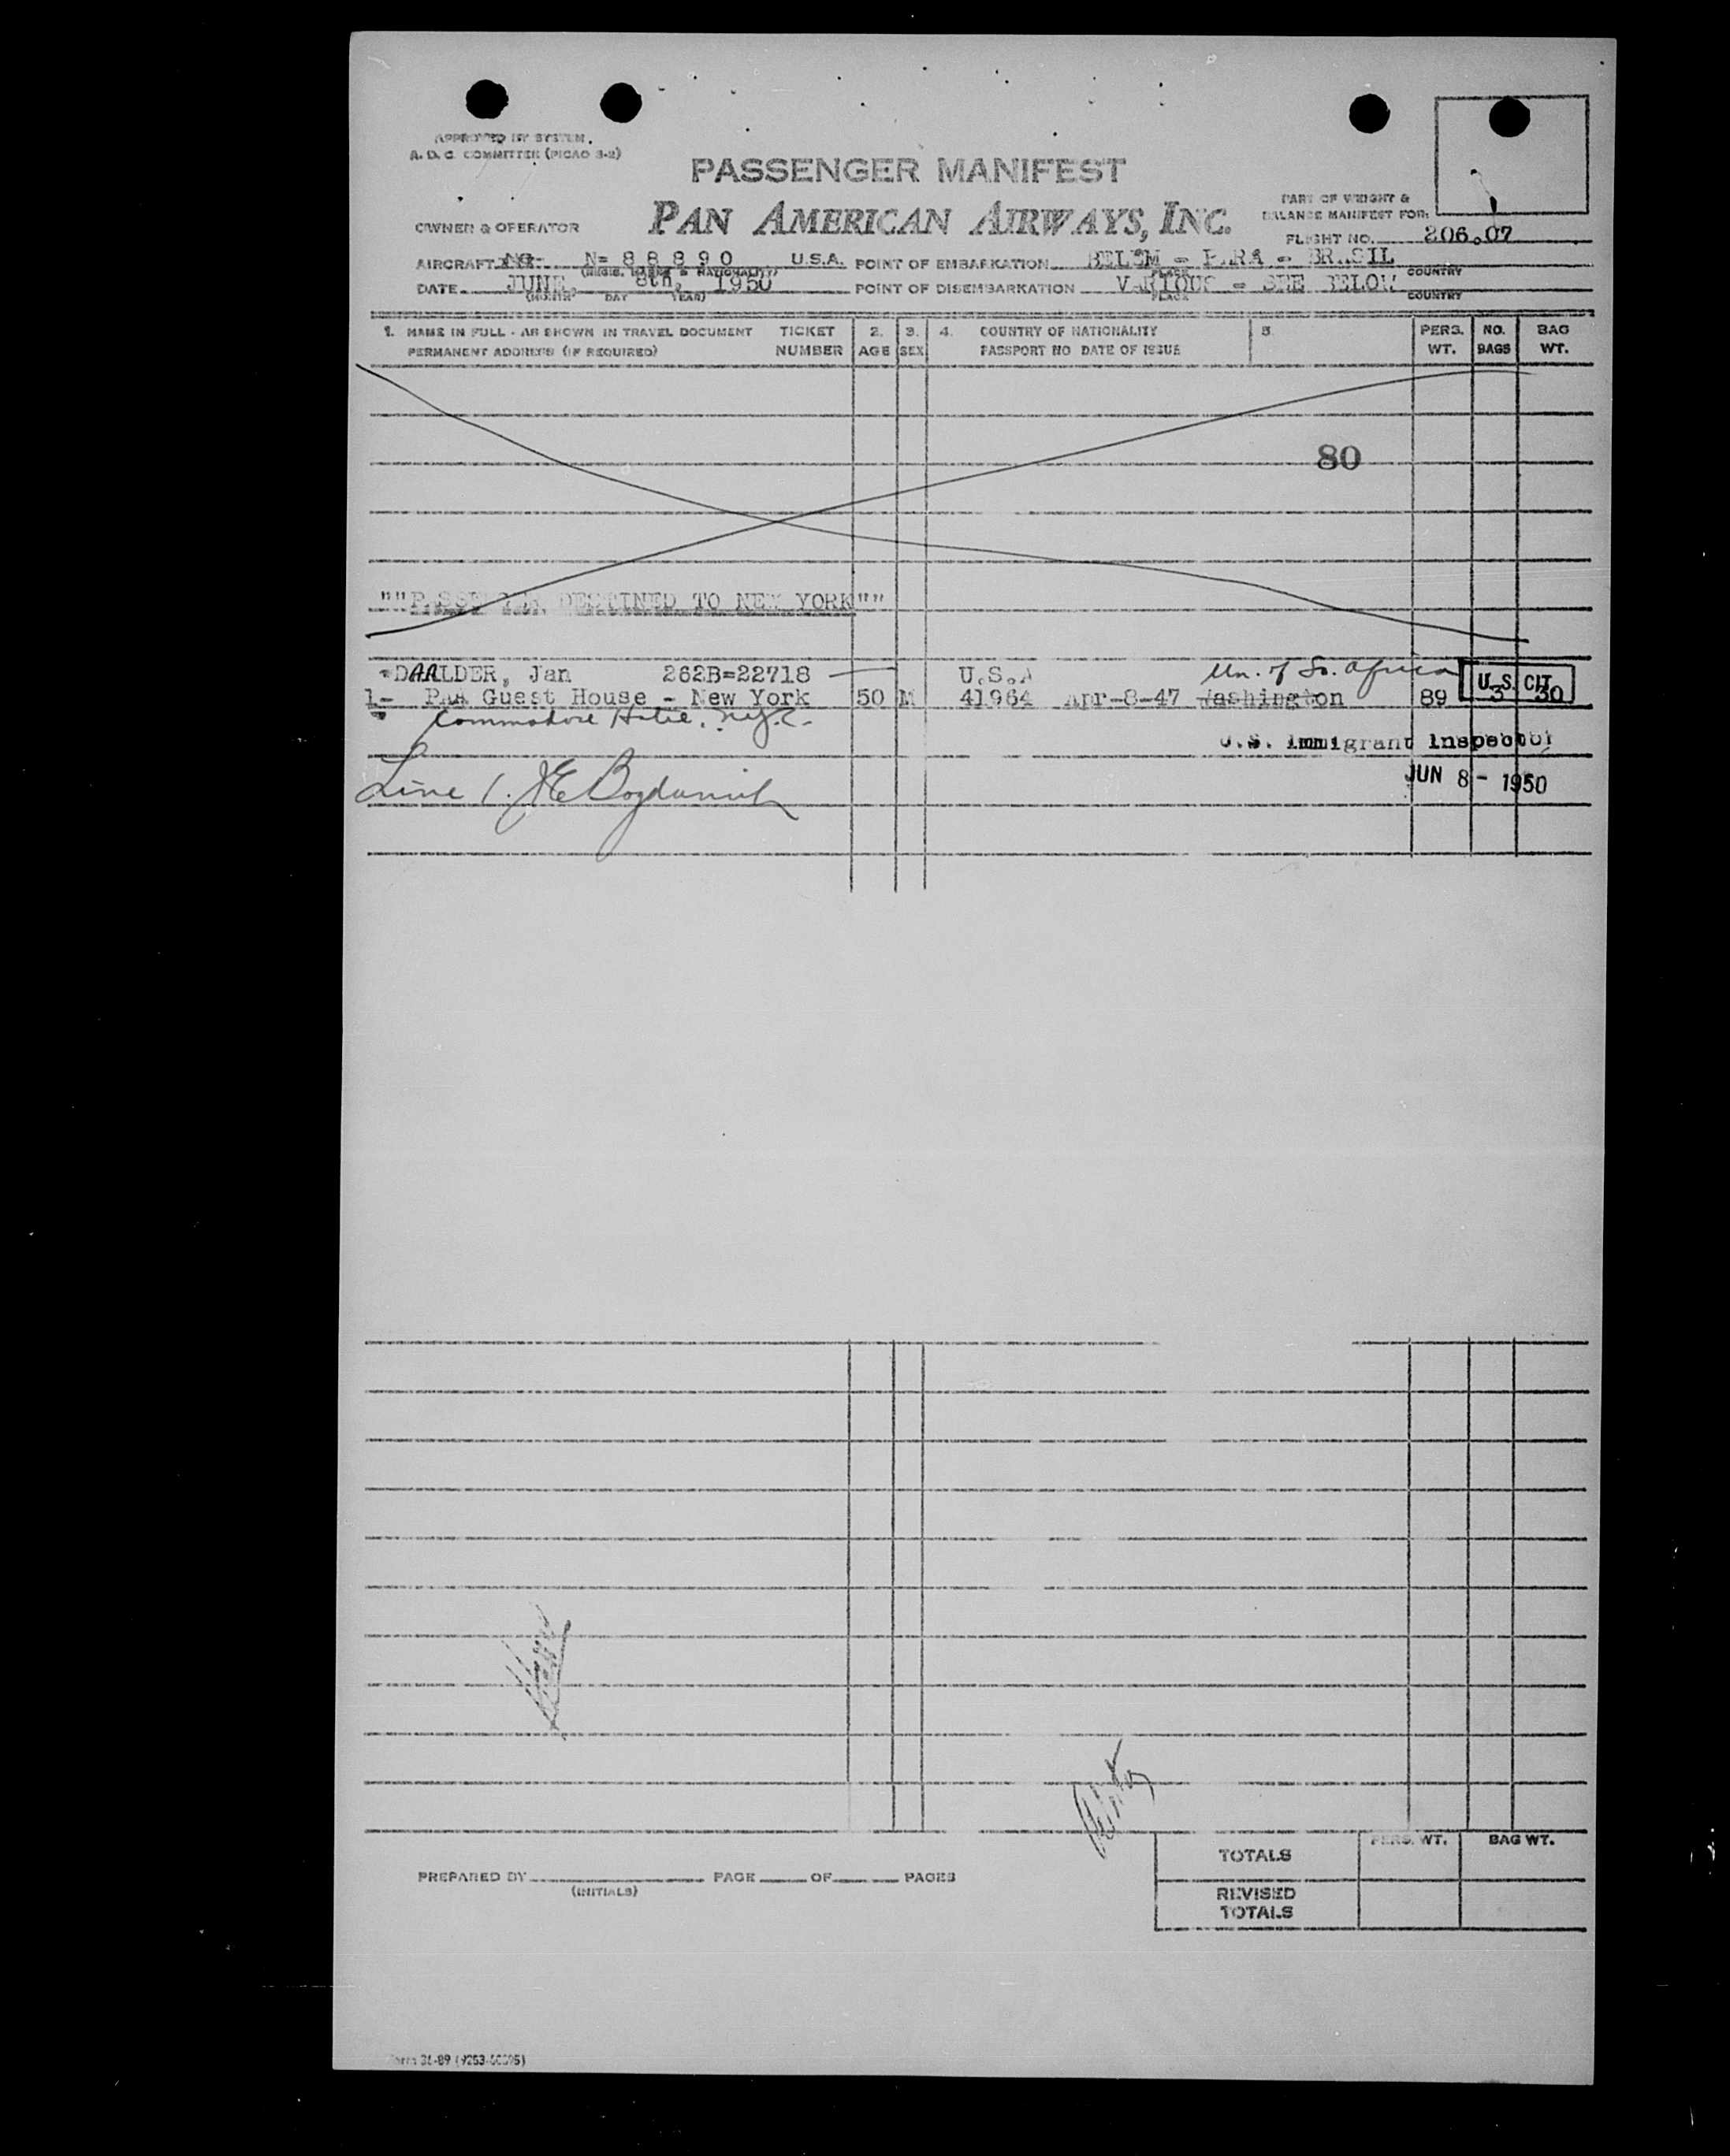 APPROVED BY SYSTEM.
A. D. C. COMMITTEE (PICAO 3-2)
PASSENGER MANIFEST
PAN AMERICAN AIRWAYS, INC.
OWNER & OPERATOR
PART OF WEIGHT &
BALANCE MANIFEST FOR:
FLIGHT NO. 206.07
AIRCRAFT NC- N- 8 8 8 9 0 U.S.A. POINT OF EMBARKATION BELEM - PARA - BRASIL
(REGIS. MARKS & NATIONALITY) PLACE COUNTRY
DATE JUNE, 8th, 1950 POINT OF DISEMBARKATION VARIOUS - SEE BELOW
(MONTH DAY YEAR) PLACE COUNTRY
1. NAME IN FULL - AS SHOWN IN TRAVEL DOCUMENT TICKET 2. 3. 4. COUNTRY OF NATIONALITY 5. PERS. NO. BAG
PERMANENT ADDRESS (IF REQUIRED) NUMBER AGE SEX PASSPORT NO DATE OF ISSUE WT. BAGS WT.
80
""PASSENGER DESTINED TO NEW YORK""
DAALDER, Jan 262B=22718 U.S.A Un. of So. Africa U.S. CIT.
1- PAA Guest House - New York 50 M 41964 Apr-8-47 Washington 89 3 30
Commodore Hotel, N.Y.C.
U.S. Immigrant Inspector
Line 1. JE
JUN 8 - 1950
TOTALS PERS. WT. BAG WT.
PREPARED BY PAGE OF PAGES
(INITIALS)
REVISED
TOTALS
Form 36-89